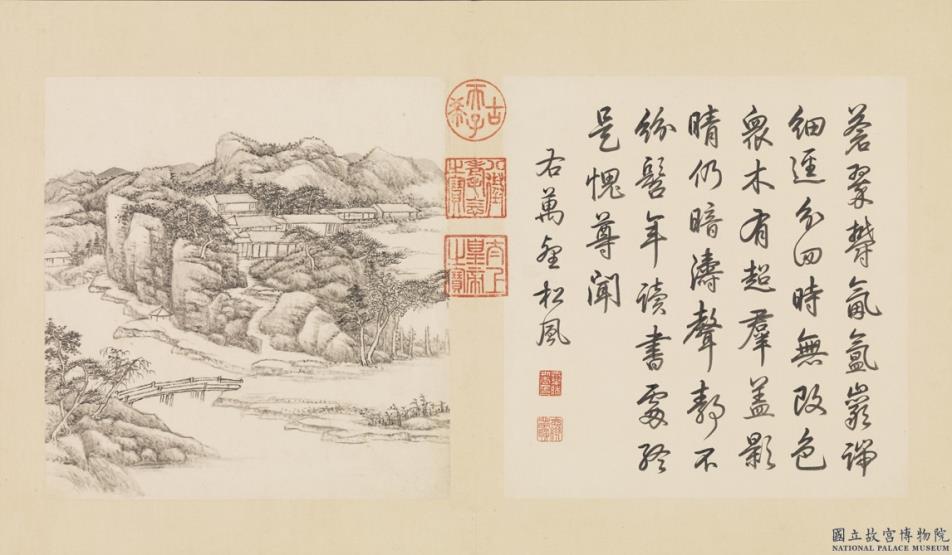 蒼翠鬱氤氳巖端
細逕分四時無改色
衆木有超羣蓋影
晴仍暗濤聲靜不
紛髫年讀書處終
是愧尊聞
右萬壑松風
古希天子
八徵耄念之寶
太上皇帝之寶
國立故宮博物院
NATIONAL PALACE MUSEUM